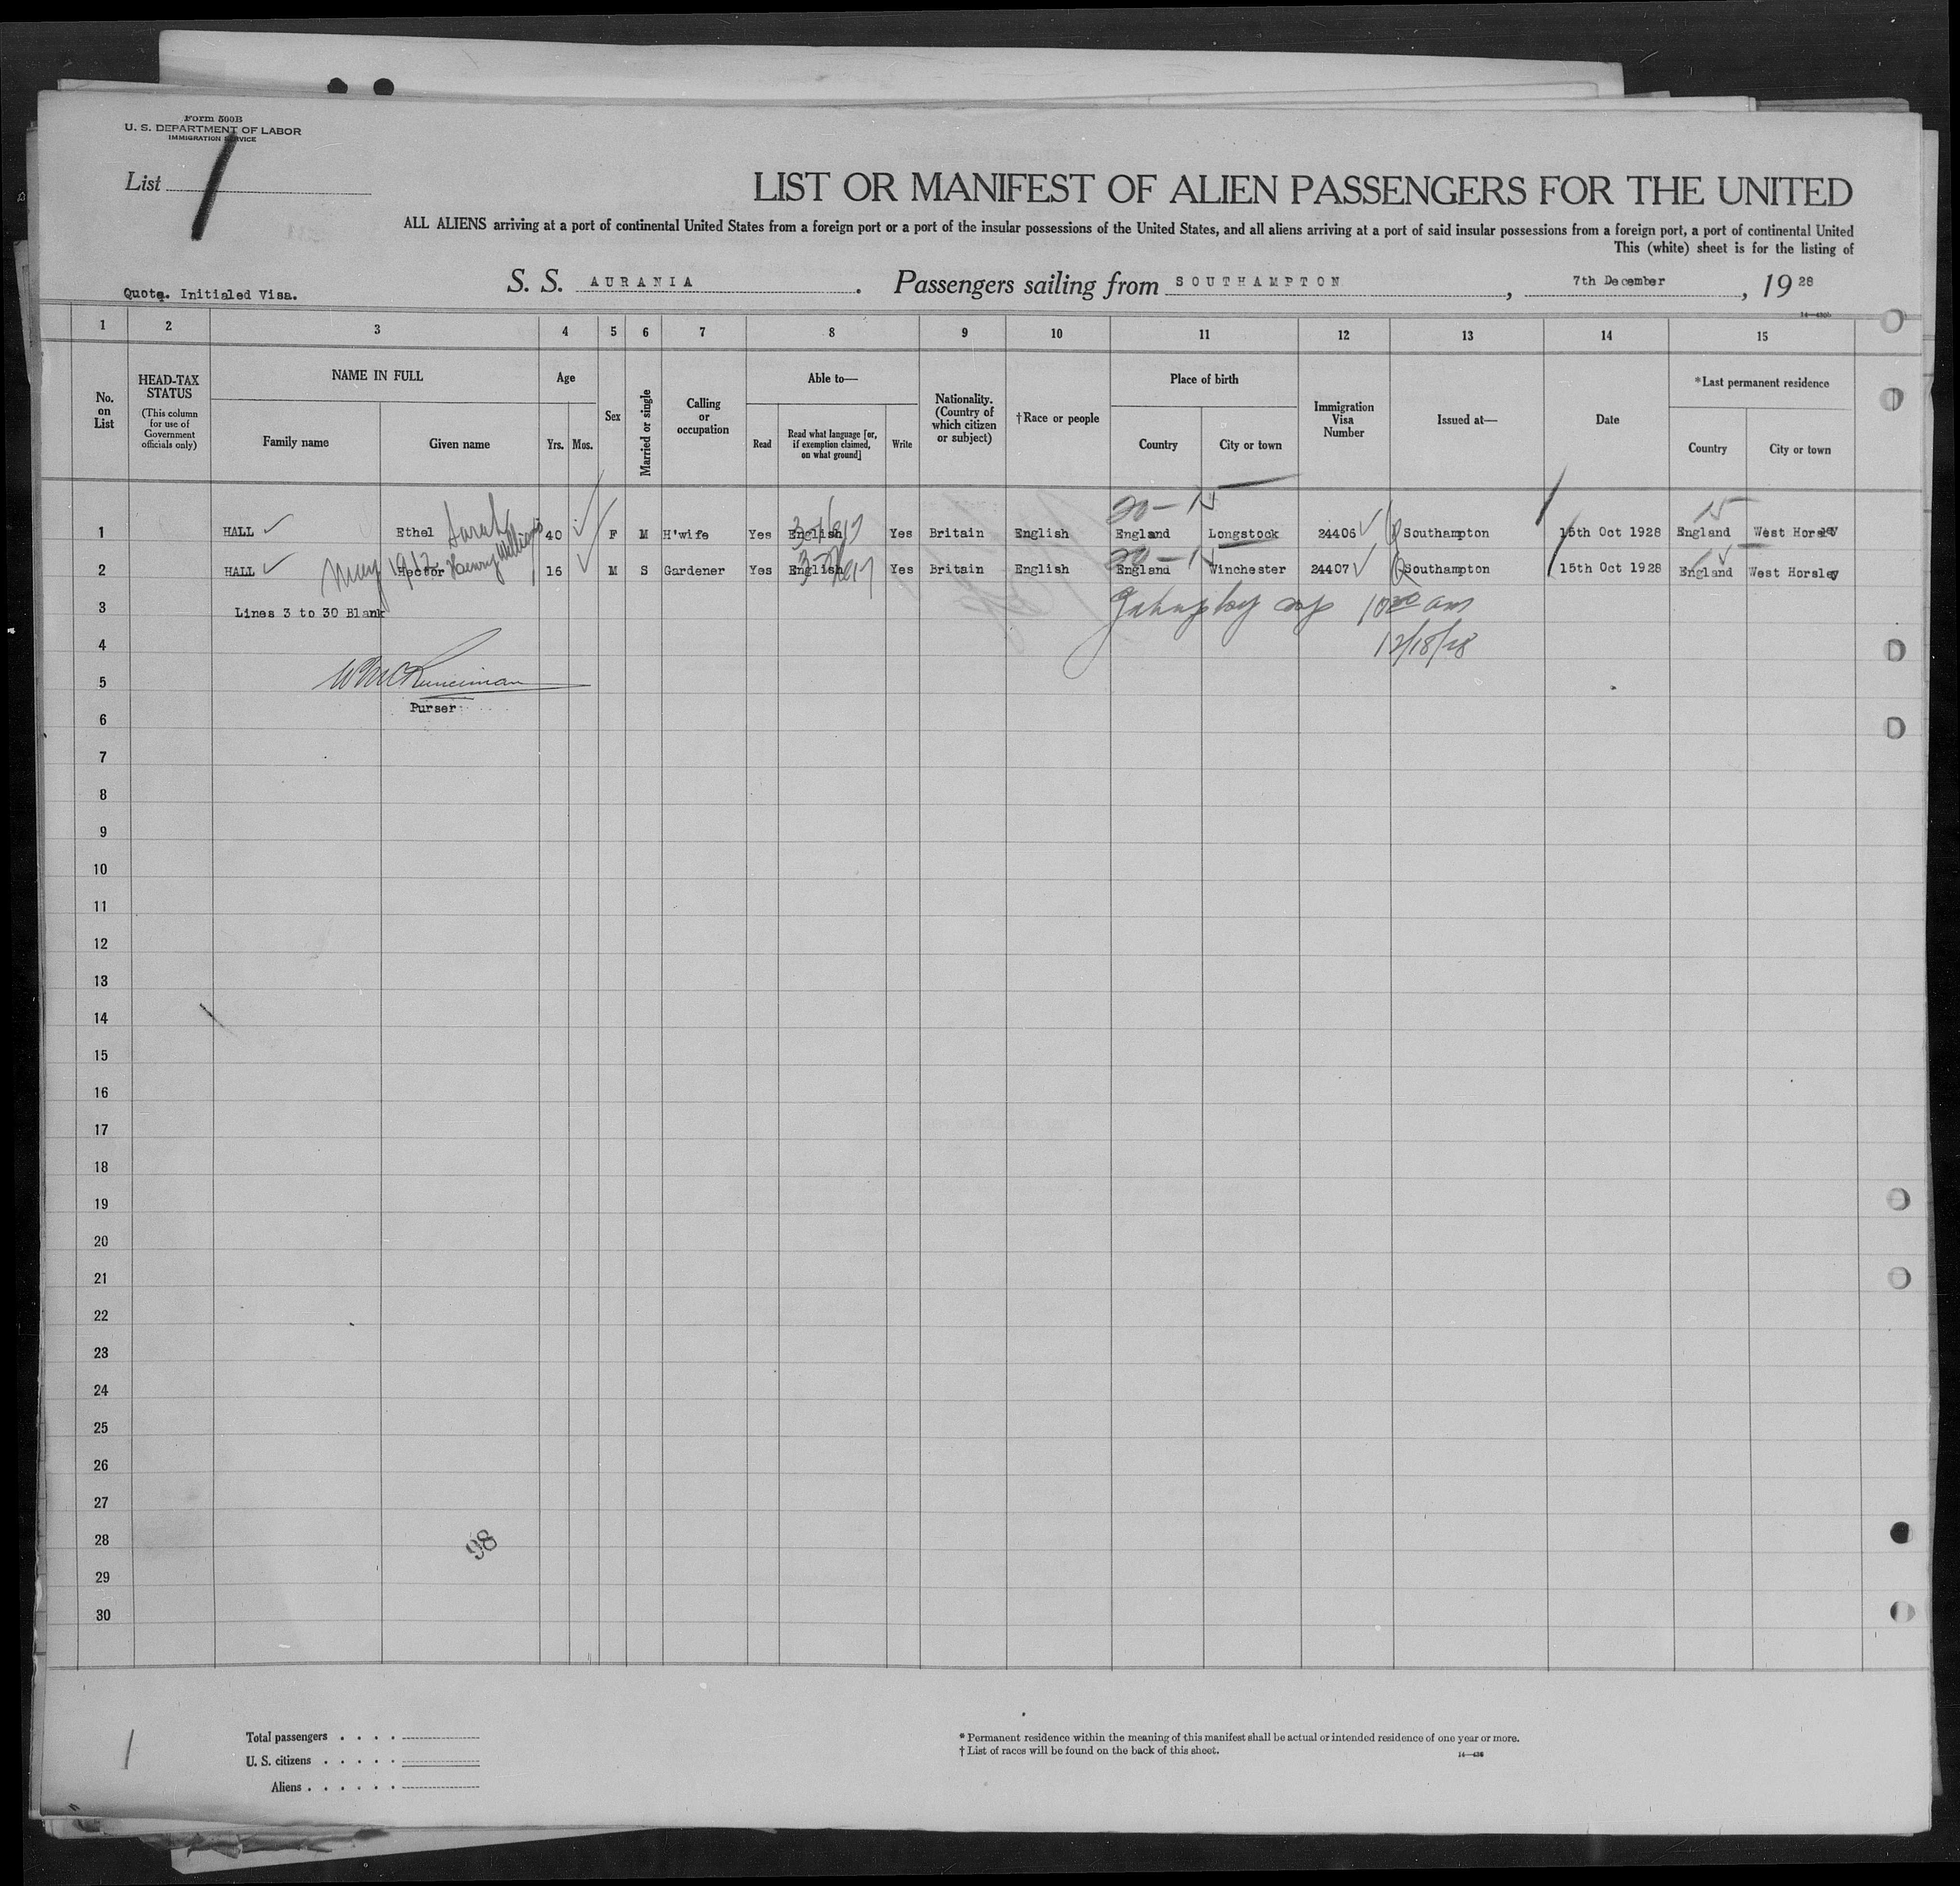 Form 500B
U. S. DEPARTMENT OF LABOR
IMMIGRATION SERVICE
List 1
LIST OR MANIFEST OF ALIEN PASSENGERS FOR THE UNITED
ALL ALIENS arriving at a port of continental United States from a foreign port or a port of the insular possessions of the United States, and all aliens arriving at a port of said insular possessions from a foreign port, a port of continental United
This (white) sheet is for the listing of
Quota. Initialed Visa.
S. S. AURANIA. Passengers sailing from SOUTHAMPTON, 7th December, 1928
14—430b
1 2 3 4 5 6 7 8 9 10 11 12 13 14 15
No. on List
HEAD-TAX STATUS (This column for use of Government officials only)
NAME IN FULL
Family name
Given name
Age
Yrs.
Mos.
Sex
Married or single
Calling or occupation
Able to—
Read
Read what language [or, if exemption claimed, on what ground]
Write
Nationality. (Country of which citizen or subject)
†Race or people
Place of birth
Country
City or town
Immigration Visa Number
Issued at—
Date
*Last permanent residence
Country
City or town
20 — 15
1 HALL Ethel Sarah 40 F M H'wife Yes English Yes Britain English England Longstock 24406 Southampton 15th Oct 1928 England West Horsley
May 1912
2 HALL Hector Henry William 16 M S Gardener Yes English Yes Britain English England Winchester 24407 Southampton 15th Oct 1928 England West Horsley
3 Lines 3 to 30 Blank
10 20 am
4 12/18/28
5
Purser
6
7
8
9
10
11
12
13
14
15
16
17
18
19
20
21
22
23
24
25
26
27
28
98
29
30
1
Total passengers
U. S. citizens
Aliens
* Permanent residence within the meaning of this manifest shall be actual or intended residence of one year or more.
† List of races will be found on the back of this sheet.